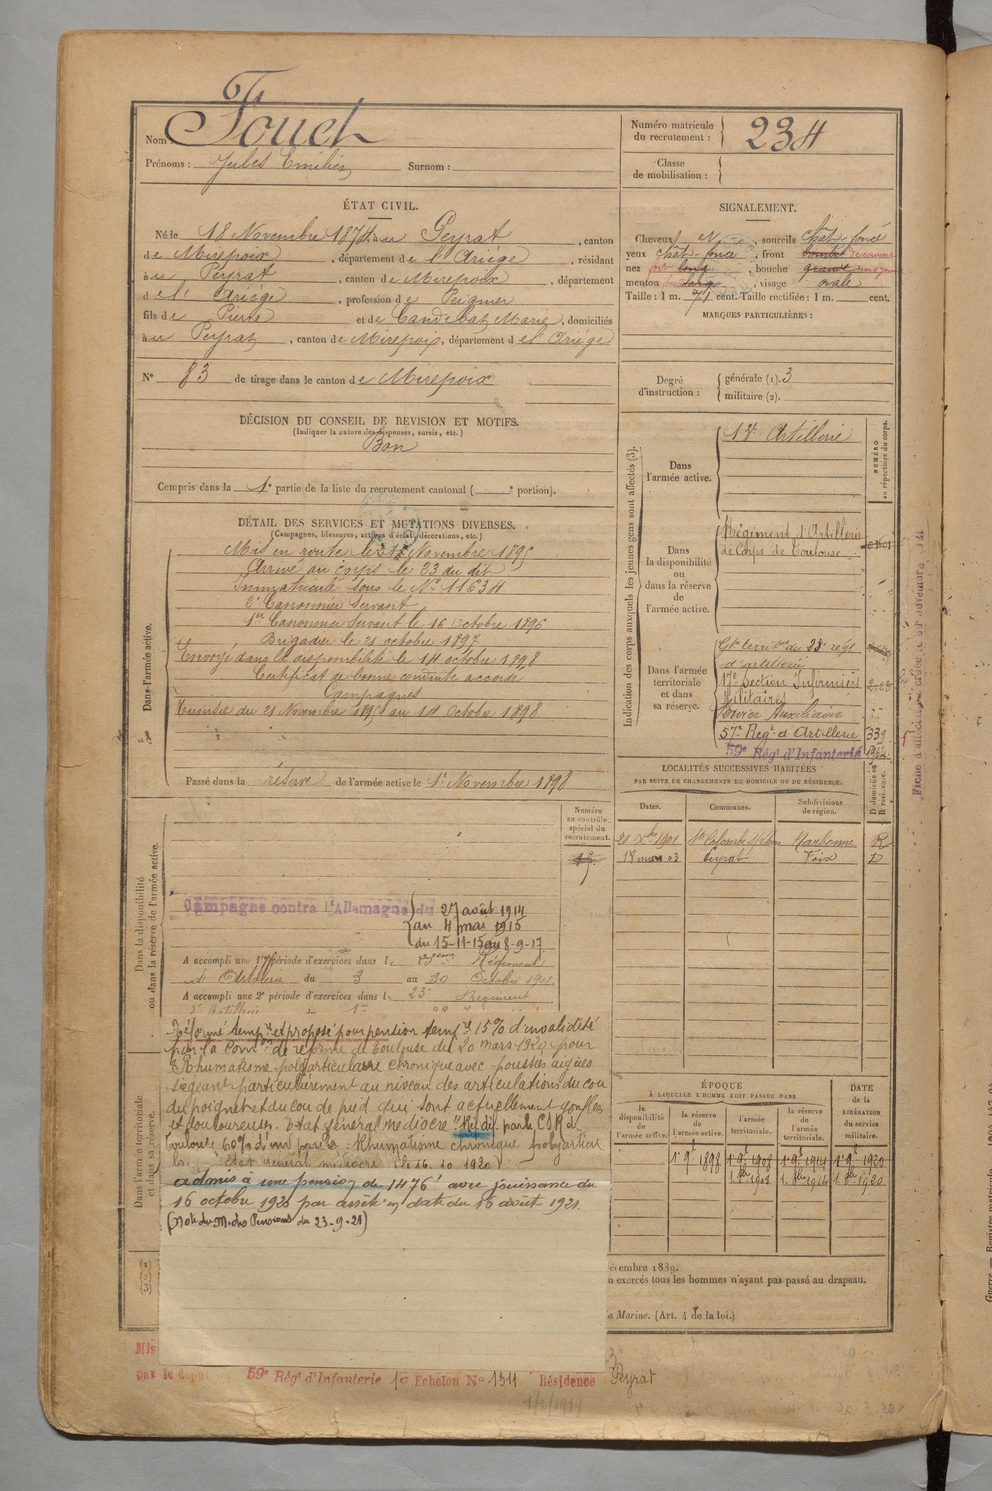 Nom Fouch
Prénoms : Jules Emilien Surnom :
Numéro matricule du recrutement : 234
Classe de mobilisation :
ÉTAT CIVIL.
Né le 18 Novembre 1874, au Peyrat, canton
de Mirepoix, département de l'Ariège, résidant
au Peyrat, canton de Mirepoix, département
de l'Ariège, profession de Peigner
fils de Pierre et de Candebat Marie, domiciliés
au Peyrat, canton de Mirepoix, département de l'Ariège
N° 83 de tirage dans le canton de Mirepoix
SIGNALEMENT.
Cheveux sourcils chât. foncé
yeux chât. foncé, front
nez long, bouche grande moyenne
menton large, visage ovale
Taille : 1 m. 71 cent. Taille rectifiée : 1 m. cent.
MARQUES PARTICULIÈRES :
Degré d'instruction : générale (1). 3
militaire (2).
DÉCISION DU CONSEIL DE REVISION ET MOTIFS.
(Indiquer la nature des dispenses, sursis, etc.)
Bon
Compris dans la 1e partie de la liste du recrutement cantonal ( e portion).
DÉTAIL DES SERVICES ET MUTATIONS DIVERSES.
(Campagnes, blessures, actions d'éclat, décorations, etc.)
Dans l'armée active.
Mis en route le Novembre 1895
Arrivé au corps le 23 du dit
Immatriculé sous le N° 11634
2e Canonnier Servant
1er Canonnier Servant le 16 Octobre 1896
Brigadier le 21 octobre 1897
Envoyé dans la disponibilité le 14 octobre 1898
Certificat de bonne conduite accordé
Campagnes
Tunisie du 21 Novembre 1895 au 14 Octobre 1898
Passé dans la réserve de l'armée active le 1er Novembre 1898
Indication des corps auxquels les jeunes gens sont affectés (3).
NUMÉRO au répertoire du corps.
Dans l'armée active.
13e Artillerie
Dans la disponibilité ou dans la réserve de l'armée active.
Régiment d'Artillerie
de Corps de Toulouse
Dans l'armée territoriale et dans sa réserve.
Gpe territal du 23e régt
d'artillerie
17e Section Infirmiers
Militaires
Service Auxiliaire
57e Régt d'Artillerie 339
59e Régt d'Infanterie
LOCALITÉS SUCCESSIVES HABITÉES
PAR SUITE DE CHANGEMENTS DE DOMICILE OU DE RÉSIDENCE.
Dates. Communes. Subdivisions de région. D domicile ou R résidence.
21 Xbre 1901 Ste Colombe s/l'Hers Narbonne R
18 mars 03 Peyrat Foix D
Dans la disponibilité ou dans la réserve de l'armée active.
Numéro au contrôle spécial du recrutement.
Campagne contre l'Allemagne du 27 août 1914
au 4 mai 1915
du 15-11-15 au 8-9-17
A accompli une 1re période d'exercices dans le Régiment
d'Artillerie du 3 au 30 Octobre 1901
A accompli une 2e période d'exercices dans le 23e Régiment
d'Artillerie
Dans l'armée territoriale et dans sa réserve.
Réformé tempre et proposé pour pension tempre 15% d'invalidité
par la Comon de réforme de Toulouse du 20 mars 1920 pour
Rhumatisme polyarticulaire chronique avec poussées aigües
siégeant particulièrement au niveau des articulations du cou
du poignet et du cou de pied qui sont actuellement gonflées
et douloureuses. Etat général médiocre. Réf. déf. par la C.S.R. de
Toulouse 60% d'inv. pour : Rhumatisme chronique polyarticul
état général médiocre le 16.10.1920
admis à une pension de 1476f avec jouissance du
16 octobre 1920 par arrêté en date du 16 août 1921.
(Note du M. des Pensions du 23-9-21)
ÉPOQUE
À LAQUELLE L'HOMME DOIT PASSER DANS
la disponibilité de l'armée active. la réserve de l'armée active. l'armée territoriale. la réserve de l'armée territoriale. DATE de la LIBÉRATION du service militaire.
1er 9bre 1898 1er 9bre 1908 1er 9bre 1914 1er 9bre 1920
(1)
(2)
(3)
écembre 1889.
n exercés tous les hommes n'ayant pas passé au drapeau.
a Marine. (Art. 4 de la loi.)
Mis
par le dépôt 59e Régt d'Infanterie 1er Echelon N° 1311 Résidence Peyrat